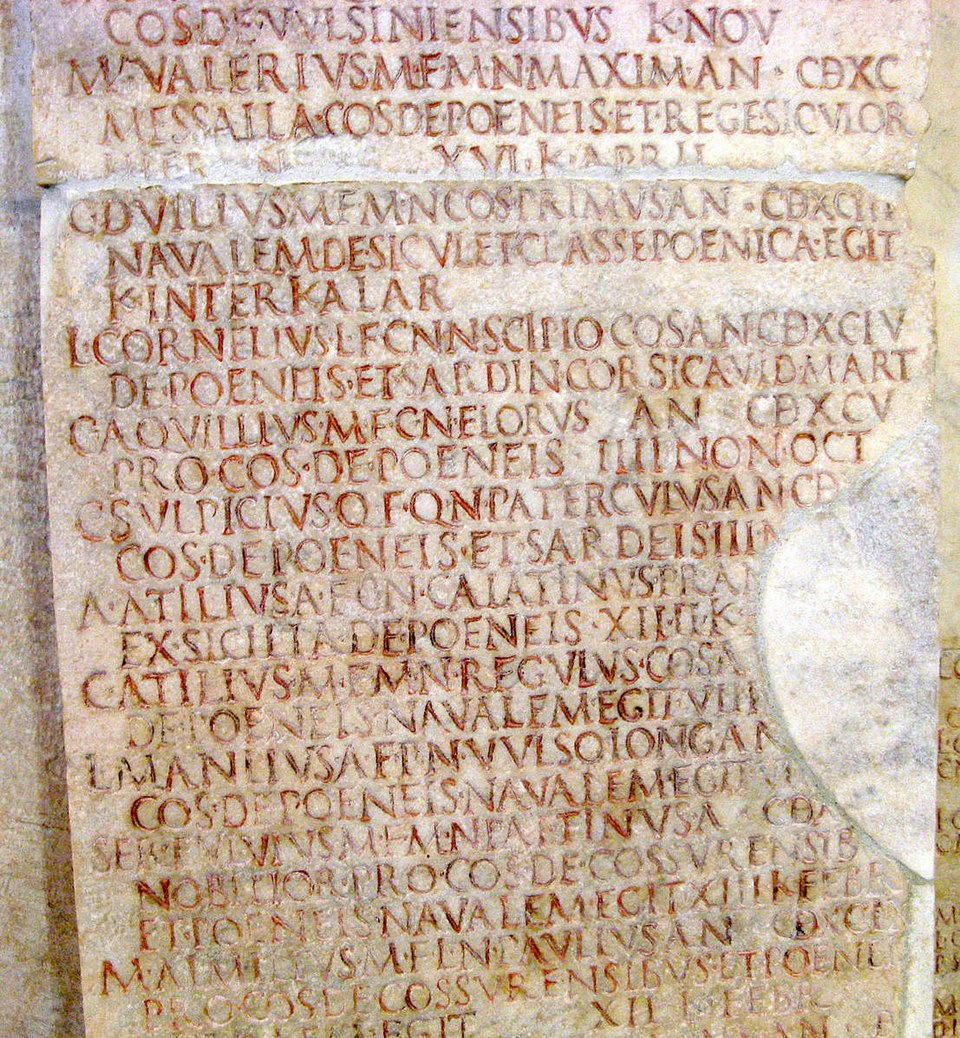 COS·DE·VVLSINIENSIBVS K·NOV
M·VALERIVS·M·F·M·N·MAXIM·AN · CDXC
MESSALLA·COS·DE·POENEIS·ET·REGE·SICVLOR
XVI·K·APRIL
C·DVILIVS·M·F·M·N·COS·PRIMVS·AN · CDXCIII
NAVALEM·DE·SICVL·ET·CLASSE·POENICA·EGIT
K·INTERKALAR
L·CORNELIVS·L·F·CN·N·SCIPIO COS·AN·CDXCIV
DE·POENEIS·ET·SARDIN·CORSICA·V·ID·MART
C·AQVILLIVS·M·F·C·N·FLORVS AN CDXCV
PRO·COS·DE·POENEIS · IIII·NON·OCT
C·SVLPICIVS·Q·F·Q·N·PATERCVLVS·AN·CD
COS·DE·POENEIS·ET·SARDEIS·III·N
A·ATILIVS·A·F·C·N·CALATINVS·PR·AN
EX·SICILIA·DE·POENEIS·XIIII·K
C·ATILIVS·M·F·M·N·REGVLVS·COS·A
DE·POENEIS·NAVALEM·EGIT·VIII
L·MANLIVS·A·F·P·N·VVLSO·LONG·AN
COS·DE·POENEIS·NAVALEM·EGIT·VI
SER·FVLVIVS·M·F·M·N·PAETINVS·A CD
NOBILIOR·PRO·COS·DE·COSSVRENSIB
ET·POENEIS·NAVALEM·EGIT·XIII·K·FEBR
M·AIMILIVS·M·F·L·N·PAVLLVS·AN CDXCIX
PRO·COS·DE·COSSVRENSIBVS·ET·POENEIS
XII K·FEBR
EGIT